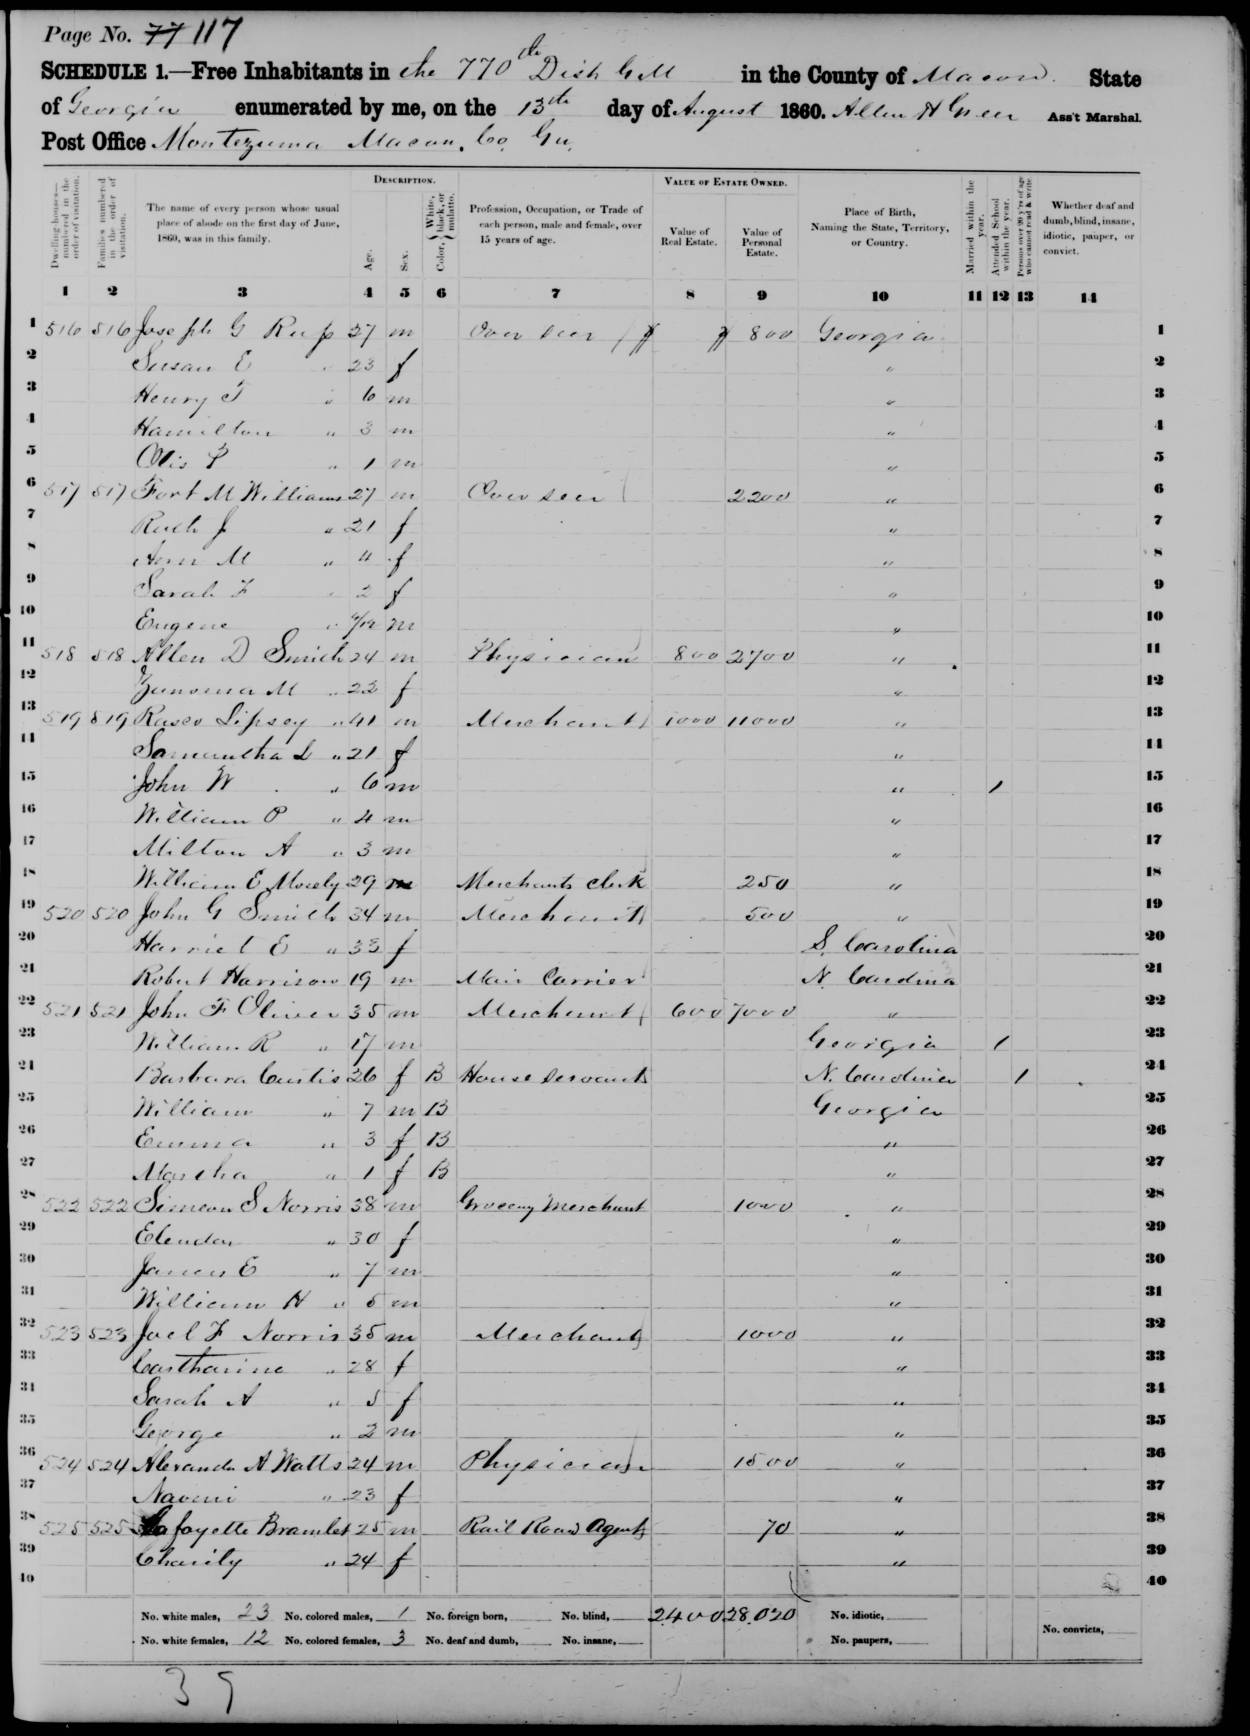 Page No. 77 117
SCHEDULE 1.—Free Inhabitants in the 770th Dist G M in the County of Macon State
of Georgia enumerated by me, on the 13th day of August 1860. Allen H Greer Ass't Marshal.
Post Office Montezuma Macon. Co, Ga.
Dwelling-houses—numbered in the order of visitation.
Families numbered in the order of visitation.
The name of every person whose usual place of abode on the first day of June, 1860, was in this family.
DESCRIPTION.
Age.
Sex.
Color, White, black, or mulatto.
Profession, Occupation, or Trade of each person, male and female, over 15 years of age.
VALUE OF ESTATE OWNED.
Value of Real Estate.
Value of Personal Estate.
Place of Birth, Naming the State, Territory, or Country.
Married within the year.
Attended School within the year.
Persons over 20 y'rs of age who cannot read & write.
Whether deaf and dumb, blind, insane, idiotic, pauper, or convict.
1 2 3 4 5 6 7 8 9 10 11 12 13 14
1 516 516 Joseph G 27 m Over seer 800 Georgia 1
2 Susan E " 23 f " 2
3 Henry T " 6 m " 3
4 Hamilton " 3 m " 4
5 Otis P " 1 m " 5
6 517 517 Fort M Williams 27 m Over seer 2200 " 6
7 Ruth J " 21 f " 7
8 Ann M " 4 f " 8
9 Sarah F " 2 f " 9
10 Eugene " /12 m " 10
11 518 518 Allen D Smith 24 m Physician 800 2700 " 11
12 M " 22 f " 12
13 519 519 Rasco Lipsey " 41 m Merchant 1000 11000 " 13
14 Samantha L " 21 f " 14
15 John W " 6 m " 1 15
16 William P " 4 m " 16
17 Milton A " 3 m " 17
18 William E Mosely 29 m Merchants clerk 250 " 18
19 520 520 John G Smith 34 m Merchant 500 " 19
20 Harriet E " 33 f S. Carolina 20
21 Robert Harrison 19 m Mail Carrier N. Carolina 21
22 521 521 John F Oliver 35 m Merchant 600 7000 " 22
23 William R " 17 m Georgia 1 23
24 Barbara Curtis 26 f B House Servant N. Carolina 1 24
25 William " 7 m B Georgia 25
26 Emma " 3 f B " 26
27 Martha " 1 f B " 27
28 522 522 Simeon S Norris 38 m Grocery Merchant 1000 " 28
29 Elendar " 30 f " 29
30 James E " 7 m " 30
31 William H " 5 m " 31
32 523 523 Joel F Norris 35 m Merchant 1000 " 32
33 Cartharine " 28 f " 33
34 Sarah A " 5 f " 34
35 George " 2 m " 35
36 524 524 Alexander A Watts 24 m Physician 1500 " 36
37 Naomi " 23 f " 37
38 525 525 Lafayette Bramlet 25 m Rail Road Agent 70 " 38
39 Charity " 24 f " 39
40 40
No. white males, 23 No. colored males, 1 No. foreign born, No. blind, 2400 28.020 No. idiotic,
No. white females, 12 No. colored females, 3 No. deaf and dumb, No. insane, No. paupers, No. convicts,
39